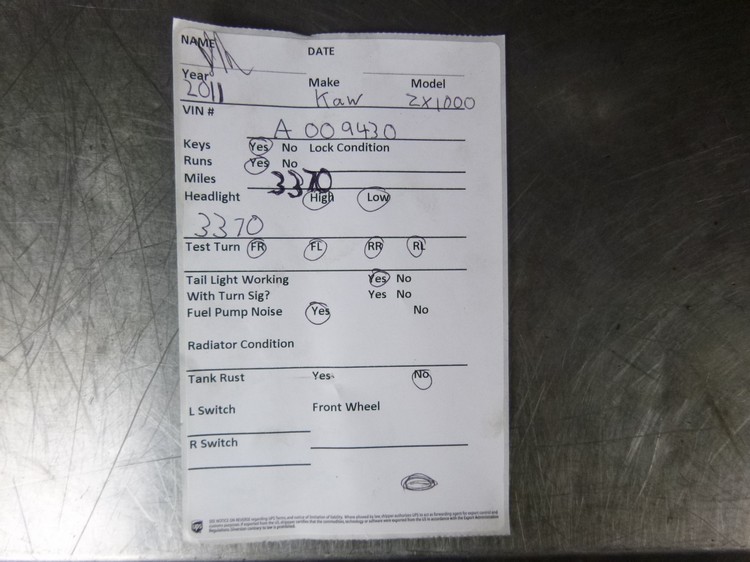 NAME DATE
Year Make Model
2011 Kaw ZX1000
VIN #
A 009430
Keys Yes No Lock Condition
Runs Yes No
Miles 3370
Headlight High Low
3370
Test Turn FR FL RR RL
Tail Light Working Yes No
With Turn Sig? Yes No
Fuel Pump Noise Yes No
Radiator Condition
Tank Rust Yes No
L Switch Front Wheel
R Switch